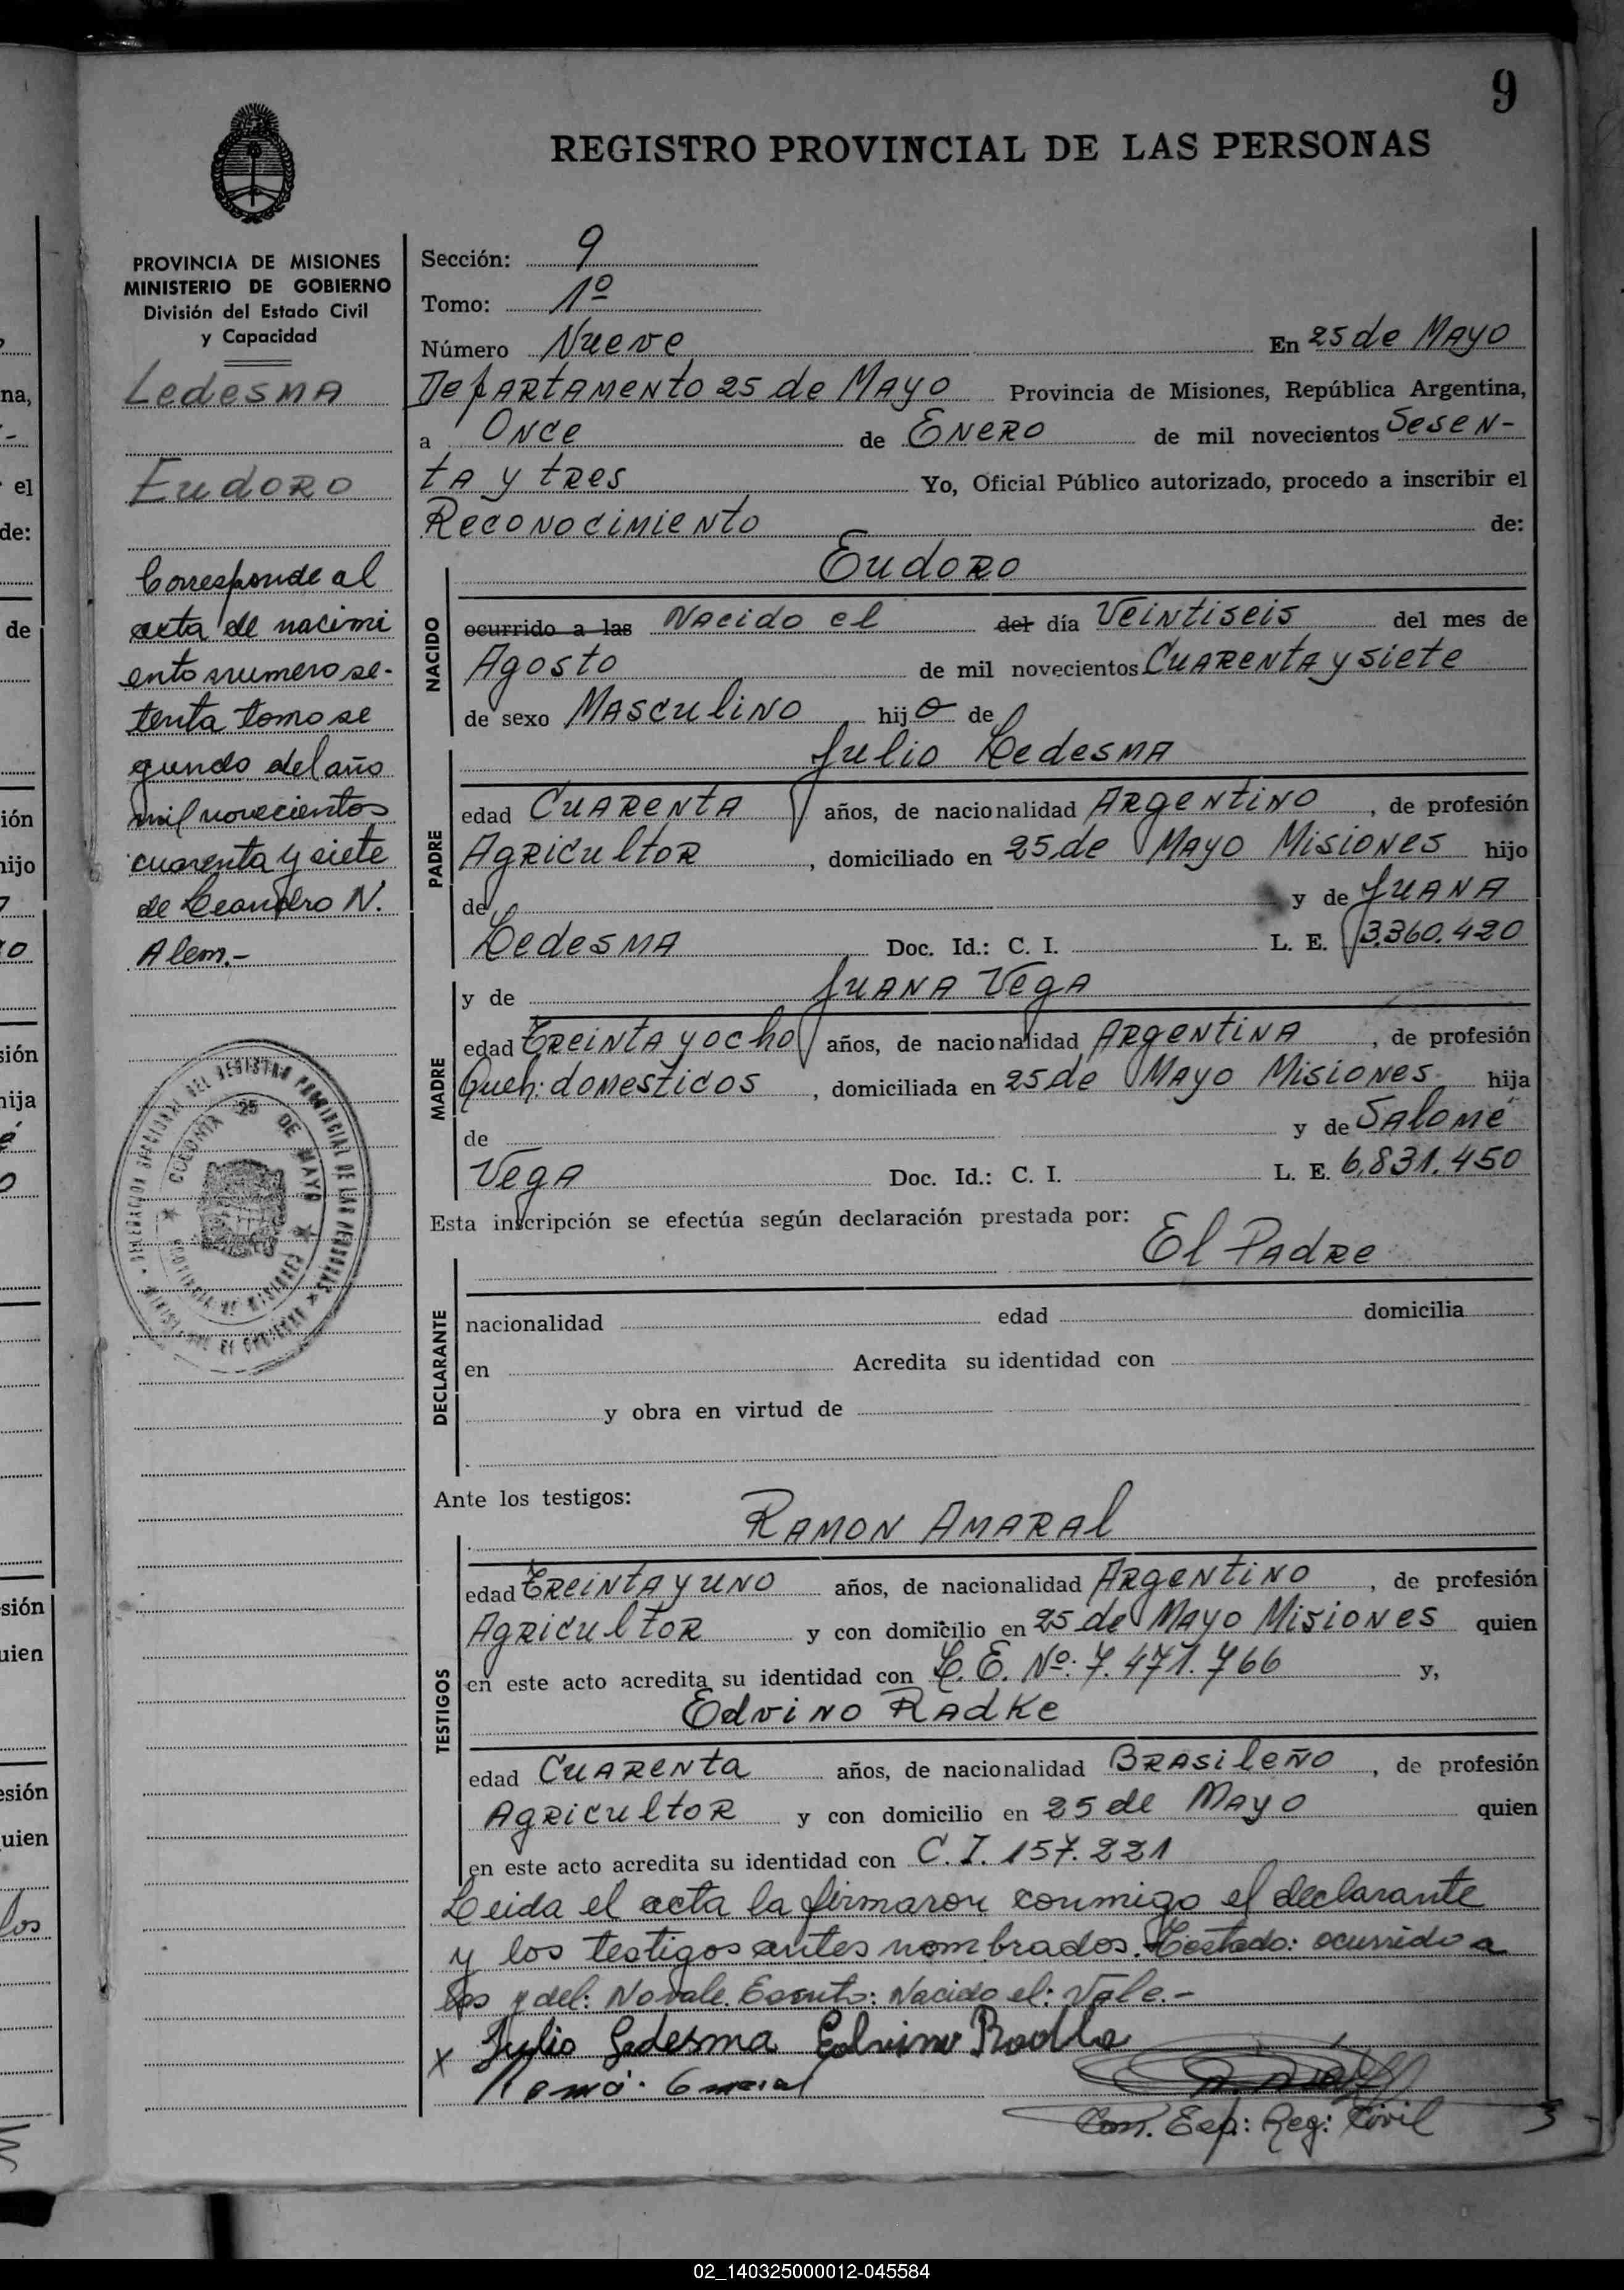 9
REGISTRO PROVINCIAL DE LAS PERSONAS
PROVINCIA DE MISIONES
MINISTERIO DE GOBIERNO
División del Estado Civil
y Capacidad
Ledesma
Eudoro
Corresponde al
acta de nacimi
ento numero se-
tenta tomo se
gundo del año
mil novecientos
cuarenta y siete
de Leandro N.
Alem.-
COLONIA 25 DE MAYO
Sección: 9
Tomo: 1º
Número Nueve En 25 de Mayo
Departamento 25 de Mayo Provincia de Misiones, República Argentina,
a Once de Enero de mil novecientos Sesen-
ta y tres Yo, Oficial Público autorizado, procedo a inscribir el
Reconocimiento de:
Eudoro
NACIDO
ocurrido a las Nacido el del día Veintiseis del mes de
Agosto de mil novecientos Cuarenta y siete
de sexo Masculino hijo de
Julio Ledesma
PADRE
edad Cuarenta años, de nacionalidad Argentino, de profesión
Agricultor, domiciliado en 25 de Mayo Misiones hijo
de y de Juana
Ledesma Doc. Id.: C. I. L. E. 3.360.420
MADRE
y de Juana Vega
edad Treinta y ocho años, de nacionalidad Argentina, de profesión
Queh: domesticos, domiciliada en 25 de Mayo Misiones hija
de y de Salomé
Vega Doc. Id.: C. I. L. E. 6.831.450
Esta inscripción se efectúa según declaración prestada por:
El Padre
DECLARANTE
nacionalidad edad domicilia
en Acredita su identidad con
y obra en virtud de
Ante los testigos:
Ramon Amaral
TESTIGOS
edad Treinta y uno años, de nacionalidad Argentino, de profesión
Agricultor y con domicilio en 25 de Mayo Misiones quien
en este acto acredita su identidad con L.E. Nº: 7.471.766 y,
Edvino Radke
edad Cuarenta años, de nacionalidad Brasileño, de profesión
Agricultor y con domicilio en 25 de Mayo quien
en este acto acredita su identidad con C.I. 157.221
Leida el acta la firmaron conmigo el declarante
y los testigos antes nombrados. Testado: ocurrido a
las y del: No vale. Escrito: Nacido el: Vale.-
x Julio Ledesma Edvino
Reg: Civil
02_140325000012-045584